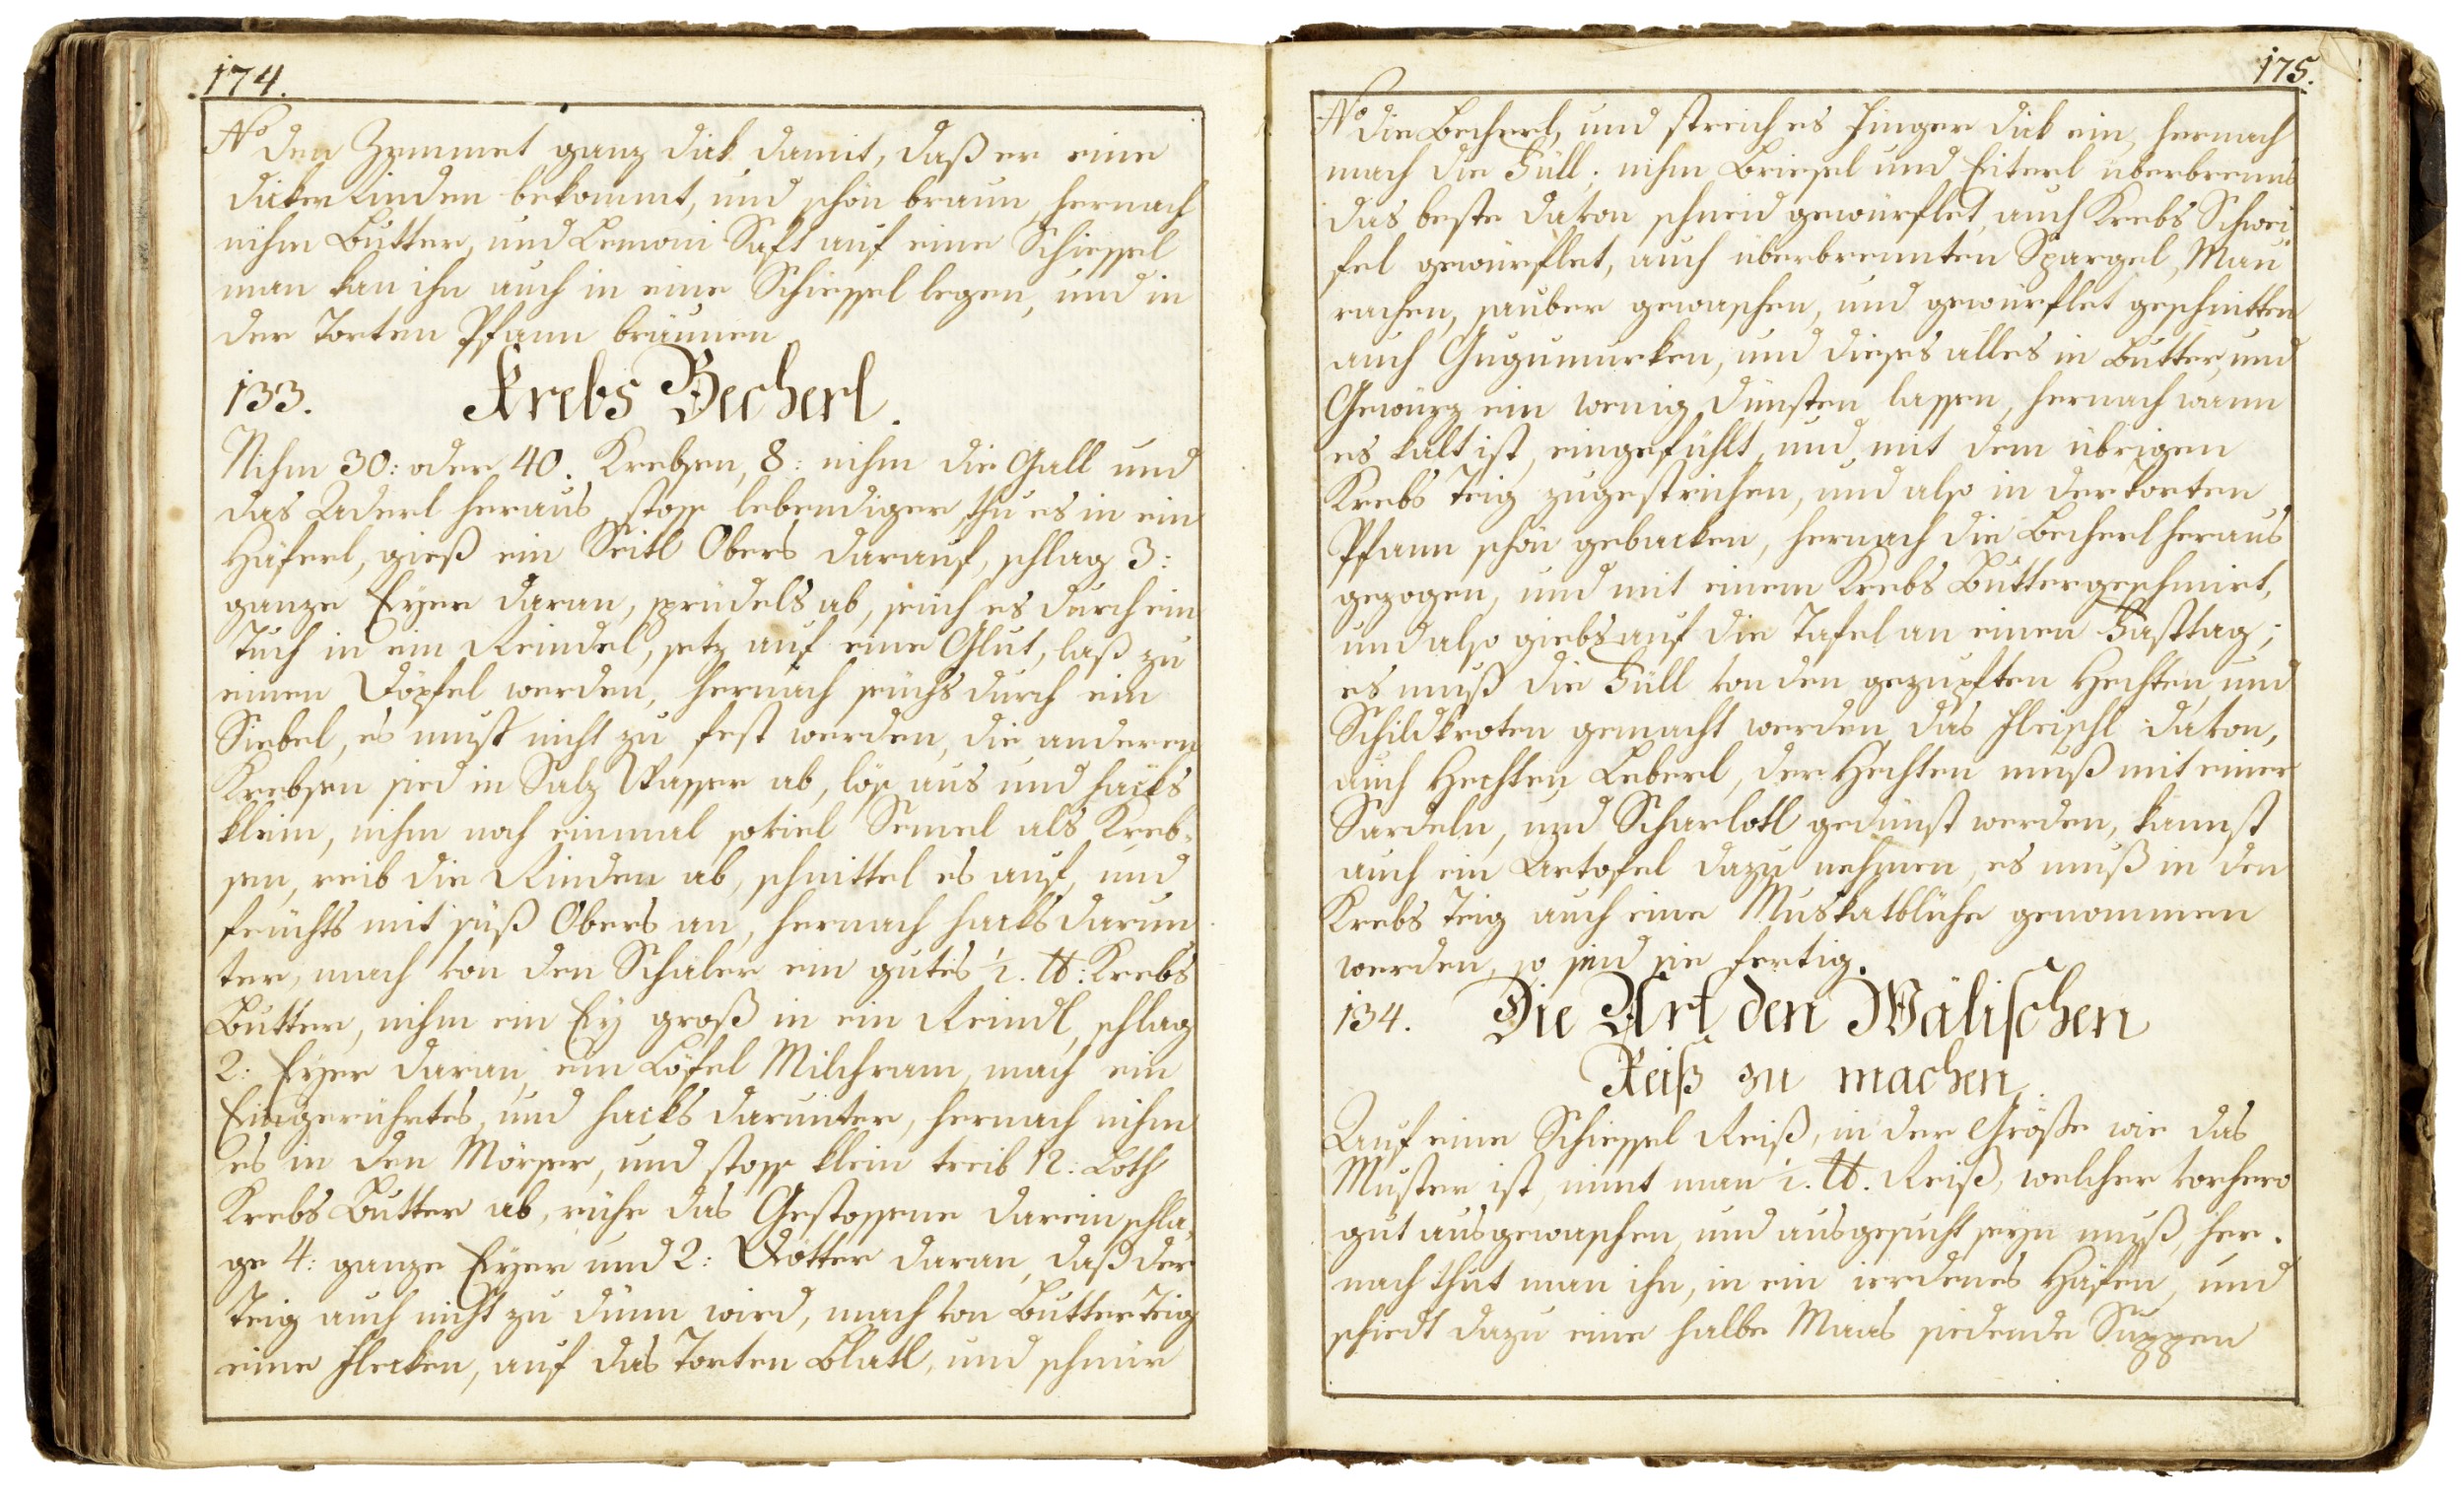 174.
No den Zemmet ganz dick damit, daß er eine
dicken Rinden bekommt, und schön braun, hernach
nihm Butter, und Lemoni Saft auf eine Schiessel
man kan ihn auch in eine Schiessel legen, und in
der Torten Pfann bräunen
133. Krebs Becherl.
Nihm 30: oder 40. Krebsen, 8: nihm die Gall und
das Aderl heraus, stoss lebendiger, thu es in ein
Häferl, gieß ein Seitl Obers darauf, schlag 3:
ganze Eyer daran, sprudels ab, seich es durch ein
Tuch in ein Reindel, setz auf eine Glut, laß zu
einen Döpfel werden, hernach seichs durch ein
Siebel, es must nicht zu fest werden, die anderen
Krebsen sied in Salz Wasser ab, lös aus und hacks
klein, nihm noch einmal soviel Semel als Kreb-
sen, reib die Rinden ab, schnittel es auf, und
feuchts mit süß Obers an, hernach hacks darun
ter, mach von den Schaler ein gutes ½. ℔: Krebs
Butter, nihm ein Ey groß in ein Reindl, schlag
2: Eyer daran, ein Löfel Milchram, mach ein
Eingerührtes, und hacks darunter, hernach nihm
es in den Mörser, und stoss klein treib 12: Loth
Krebs Butter ab, rühr das Gestossene darein schla,
ge 4: ganze Eyer und 2: Dötter daran, daß der
Teig auch nicht zu dünn wird, mach von Butter Teig
eine Flecken, auf das Torten Blatl, und schmir
175.
No die Becherl, und streich es Finger dick ein, hernach
mach die Füll; nihm Briesel und Eiterl überbrenns
das beste davon schneid gewürflet, auch Krebs Schwei
fel gewürflet, auch überbrennten Spargel, Mau
rachen, sauber gewaschen, und gewürflet geschnitten
auch Gugumurken, und dieses alles in Butter, und
Gewürz ein wenig dünsten lassen, hernach wann
es kalt ist, eingefühlt, und mit dem übrigen
Krebs Teig zugestrichen, und also in der Torten
Pfann schön gebacken, hernach die Becherl heraus
gezogen, und mit einem Krebs Butter geschmirt,
und also giebs auf die Tafel an einen Fasttag;
es muß die Füll von den gezupften Hechten, und
Schildkroten gemacht werden, das Fleischl davon,
auch Hechten Leberl, der Hechten muß mit einer
Sardeln, und Scharlotl gedünst werden, kannst
auch ein Artofel dazu nehmen, es muß in den
Krebs Teig auch eine Muskatblühe genommen
werden, so sind sie fertig.
134. Die Art den Wälischen
Reiß zu machen.
Auf eine Schiessel Reiß, in der Größe wie das
Muster ist, nimt man 1. ℔. Reiß, welcher vorhero
gut ausgewaschen, und ausgesucht seyn muß, her-
nach thut man ihn, in ein ierdenes Häfen, und
schiedt dazu eine halbe Maas siedende Suppen